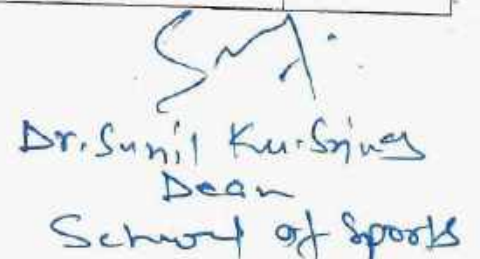 Dr. Sunil Ku.
Dean
School of Sports